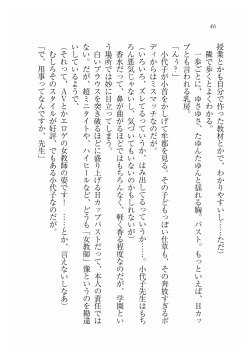 46
授業とかも自分で作った教材とかで、わかりやすいし……ただ）
隣で歩くとよくわかる。
一歩ごとに、ゆさゆさ、たゆんたゆんと揺れる胸。バスト。もっといえば、Hカッ
プとも言われる乳房。
「んぅ？」
小代子が小首をかしげて年都を見る。その子どもっぽい仕草も、その奔放すぎるボ
ディからはミスマッチなのだが。
（いろいろ、ズレてるっていうか、はみ出してるっていうか……。小代子先生はもち
ろん悪気じゃないし、気づいてもいないのだろうけど）
香水だって、鼻が曲がるほどではもちろんなく、軽く香る程度なのだが、学園とい
う場所では妙に目立ってしまう。
白いブラウスを突き破るほどに盛り上げるHカップバストだって、本人の責任では
ないのだが、超ミニタイトや、ハイヒールなど、どうも「女教師」像というのを勘違
いしているようで、
（それって、AVとかエロゲの女教師の姿です！　……とか、言えないしなあ）
むしろそのスタイルが好評、生でもある小代子なのだが。
「で、用事ってなんですか、先生」